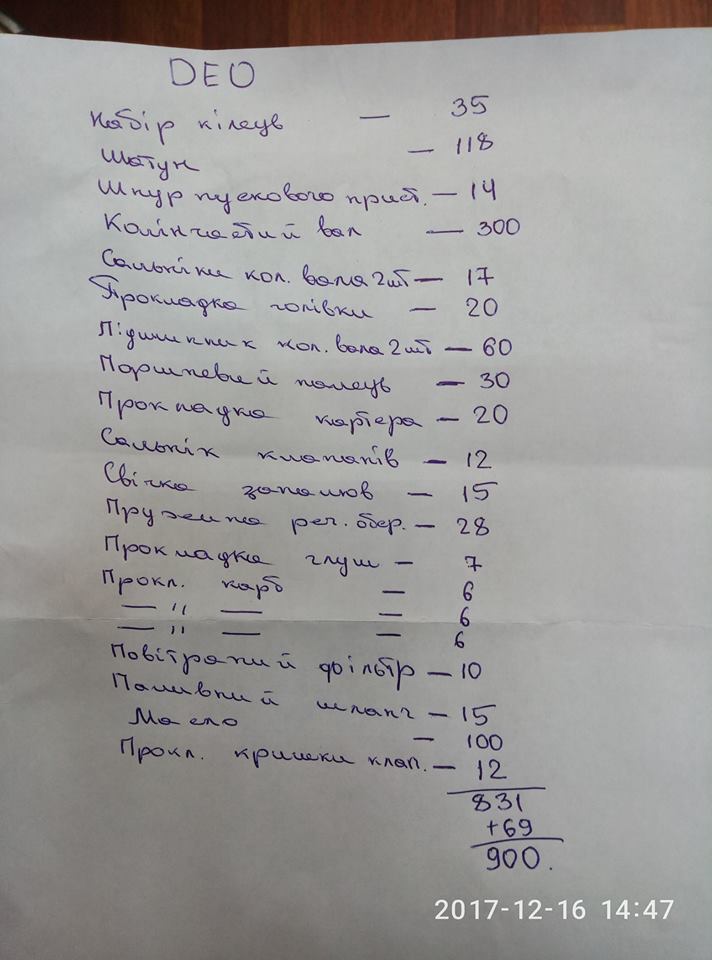 DEO
Набір кілець — 35
Шатун — 118
Шнур пускового прист. — 14
Колінчастий вал — 300
Сальніки кол. вала 2шт — 17
Прокладка голівки — 20
Підшипник кол. вала 2шт — 60
Поршневий палець — 30
Прокладка картера — 20
Сальнік клапанів — 12
Свічка запалюв — 15
Пружина рег. обер. — 28
Прокладка глуш — 7
Прокл. карб — 6
— " — — 6
— " — — 6
Повітраний фільтр — 10
Паливний шланг — 15
Масло — 100
Прокл. кришки клап. — 12
831
+69
900.
2017-12-16 14:47